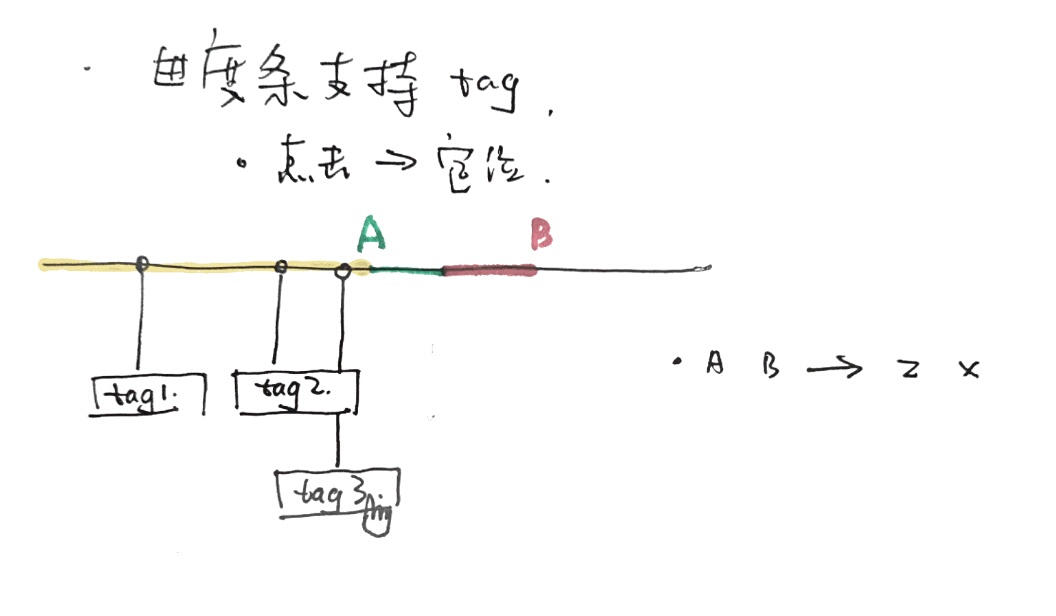 · 进度条支持 tag.
· 点击 → 定位.
A B
tag1.
tag2.
tag3
· A B → Z X